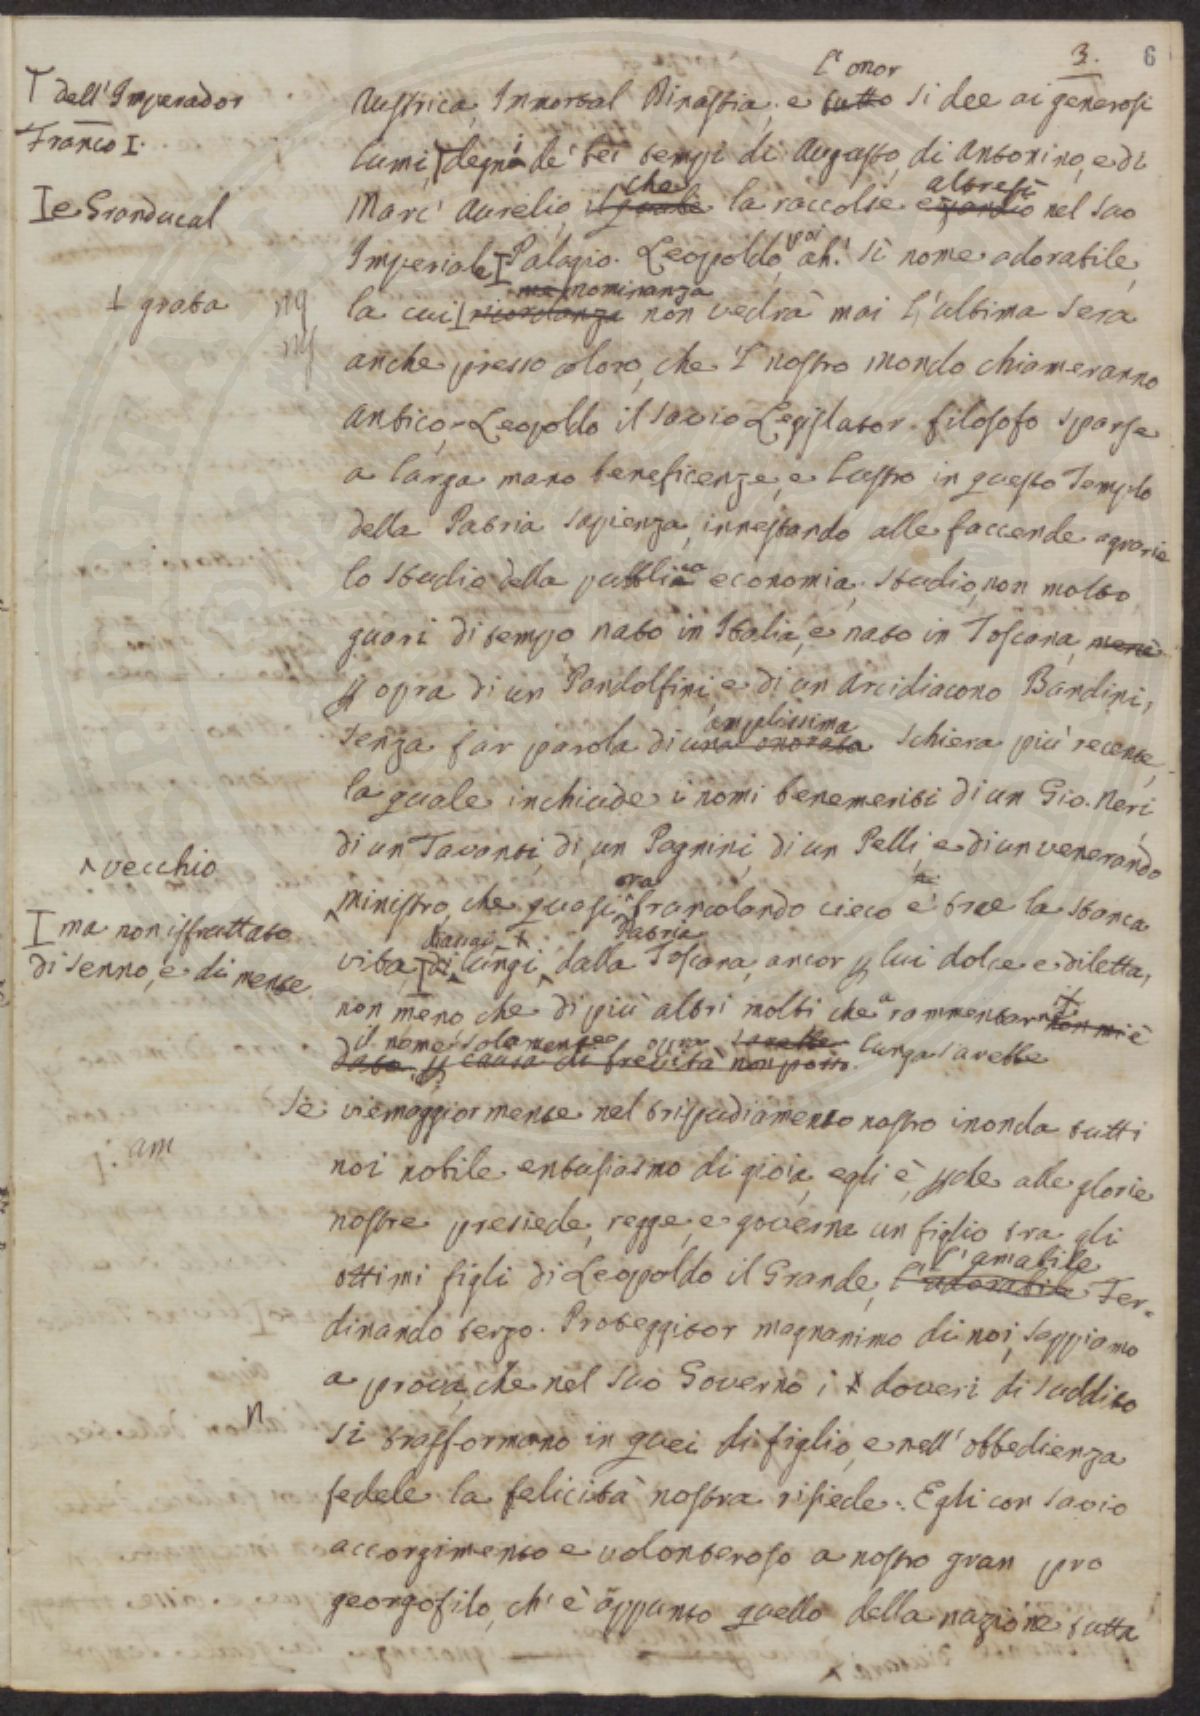 3. 6
l'onor
Austrica, Immortal Dinastia, e tutto si dee ai generosi
T dell'Imperador
Franc̄o I.
lumi, degni de' bei tempi di Augusto, di Antonino, e di
che altresì
I e Granducal
Marc' Aurelio, il quale la raccolse eziandio nel suo
poi
Imperiale I Palagio. Leopoldo, ah! sì nome adorabile,
nominanza
I grata
la cui I ricordanza non vedrà mai l'ultima sera
anche presso coloro, che 'l nostro mondo chiameranno
antico, Leopoldo il savio Legislator filosofo sparse
a larga mano beneficenze, e lustro in questo Templo
della Patria sapienza, innestando alle faccende agrarie
lo studio della pubblica economia, studio, non molto
guari di tempo, nato in Italia, e nato in Toscana,
p opra di un Pandolfini, e di un Arcidiacono Bandini,
amplissima
senza far parola di una onorata schiera più recente,
la quale inchiude i nomi benemeriti di un Gio. Neri,
di un Tavanti, di un Pagnini, di un Pelli, e di un venerando
^ vecchio
ora
ministro, che quasi brancolando cieco e trae la stanca
I ma non isfruttato
di senno, e di mente.
Patria
vita, di lungi, dalla Toscana, ancor p lui dolce e diletta,
non meno che di più altri molti che a rammentarne non mi è
il nome solamente opra sarebbe lunga sarebbe
dato p causa di brevità non posso.
Se viemaggiormente nel tripudiamento nostro inonda tutti
am
noi nobile entusiasmo di gioia, egli è, pche alle glorie
nostre presiede, regge, e governa un figlio tra gli
l'amabile
ottimi figli di Leopoldo il Grande, l'adorabile Fer-
dinando terzo. Proteggitor magnanimo di noi, sappiamo
a prova, che nel suo Governo i doveri di suddito
n
si trasformano in quei di figlio, e nell'obbedienza
fedele la felicità nostra risiede. Egli con savio
accorgimento e volonteroso a nostro gran pro
georgofilo, ch'è appunto quello della nazione tutta